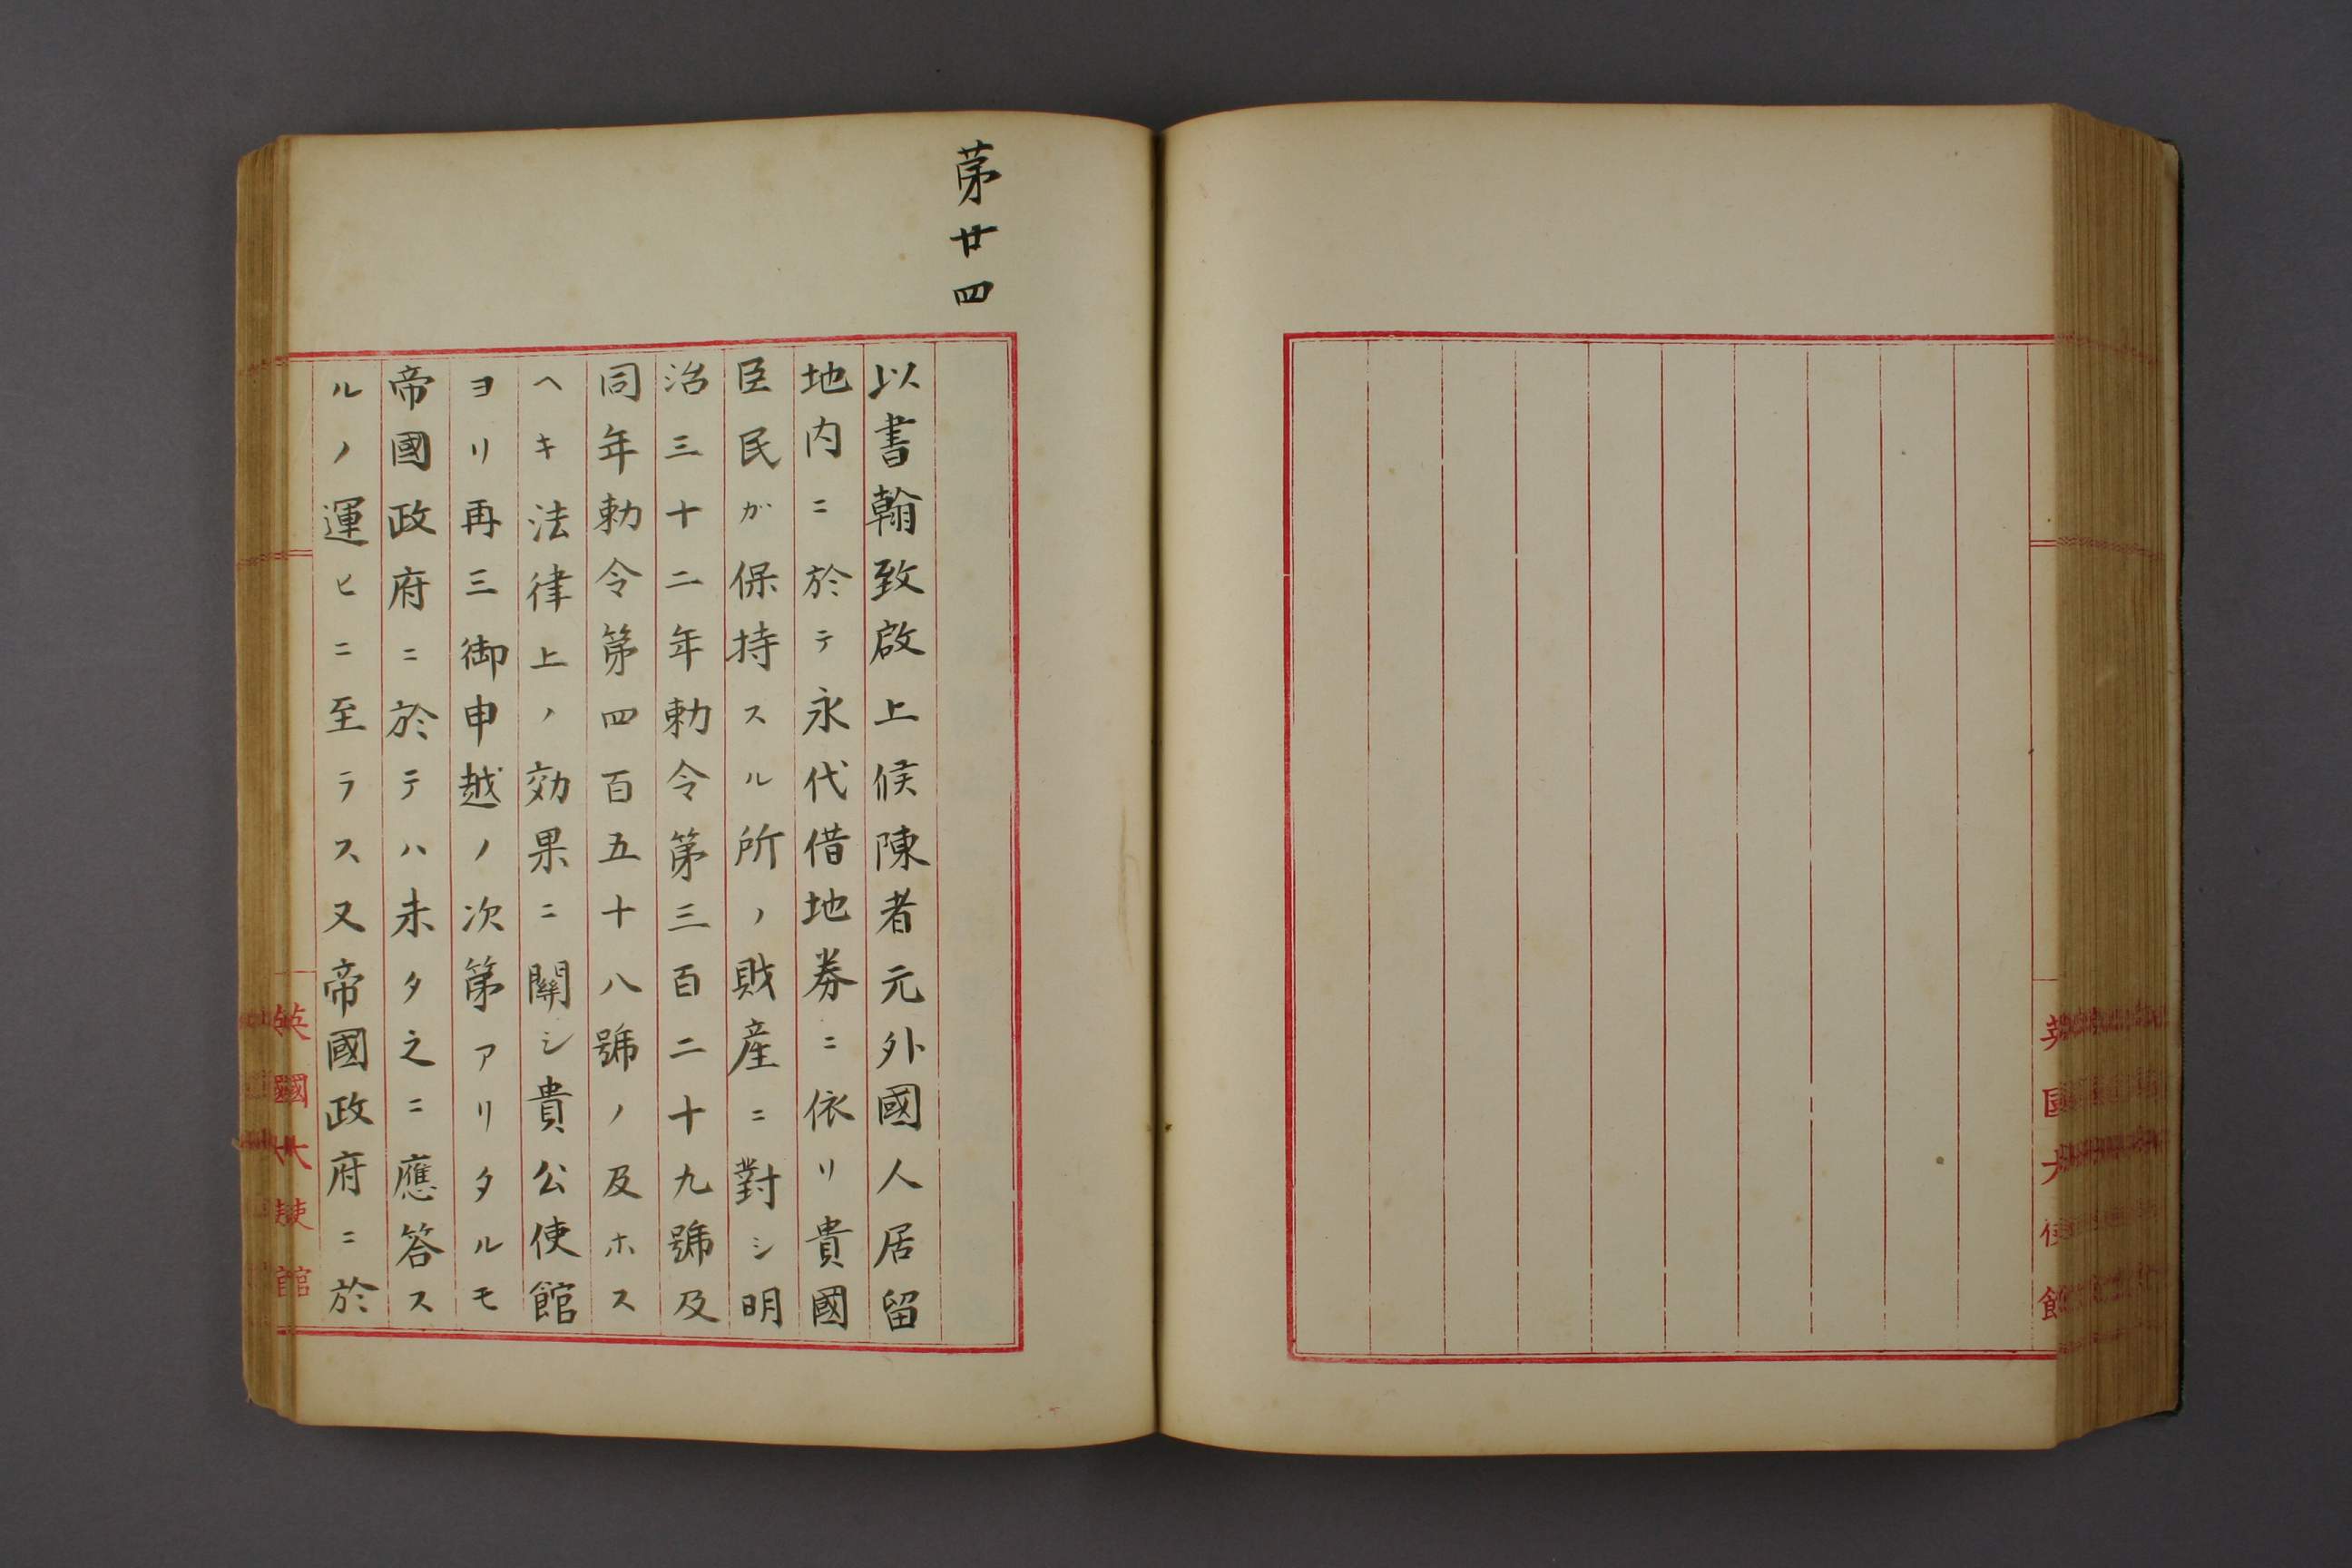 英國大使館
第廿四
以書翰致啟上候陳者元外國人居留
地内ニ於テ永代借地券ニ依リ貴國
臣民が保持スル所ノ財産ニ對シ明
治三十二年勅令第三百二十九號及
同年勅令第四百五十八號ノ及ホス
ヘキ法律上ノ効果ニ關シ貴公使館
ヨリ再三御申越ノ次第アリタルモ
帝國政府ニ於テハ未タ之ニ應答ス
ルノ運ヒニ至ラス又帝國政府ニ於
英國大使館